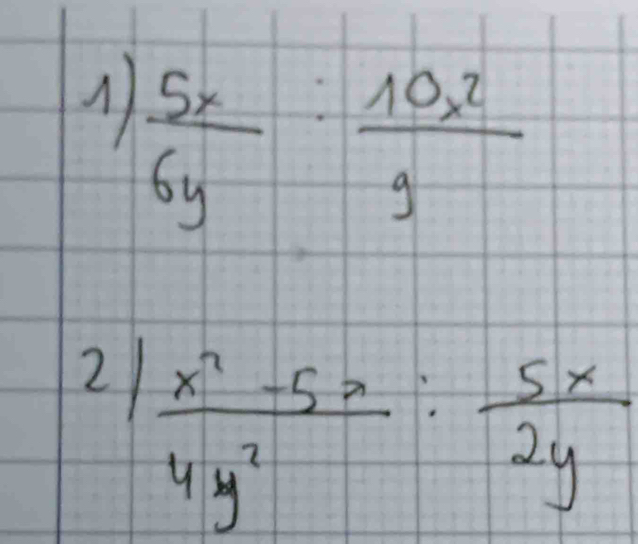 1) 5x/6y : 10x²/9
2) x² -5x/4y² : 5x/2y